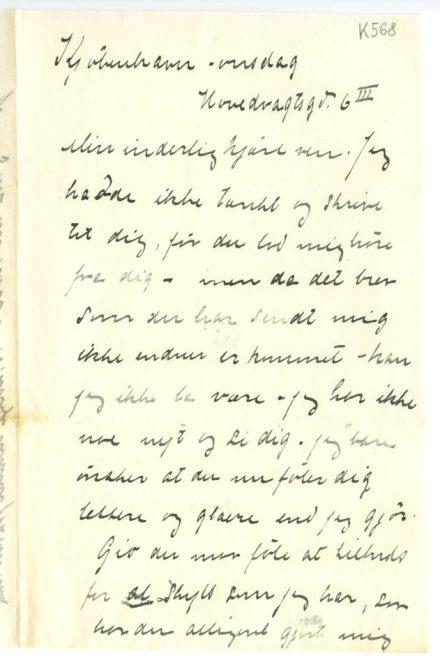 K568
Kjöbenhavn - onsdag
Hovedvagtsgd. 6 III
Min inderlig kjäre ven. Jeg
hadde ikke tænkt og skrive
til dig, för du lod mig höre
fra dig - men da det brev
som du har sendt mig
ikke endnu er kommet - kan
jeg ikke la være - jeg har ikke
noe nyt og si dig. jeg bare
önsker at du nu föler dig
lettere og glaere end jeg gjör.
Gid du må föle at tiltrods
for al skyld som jeg har, saa
har du alligevel gjort mig